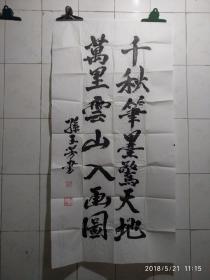 千秋筆墨驚天地
萬里雲山入画圖
2018/5/21 11:15